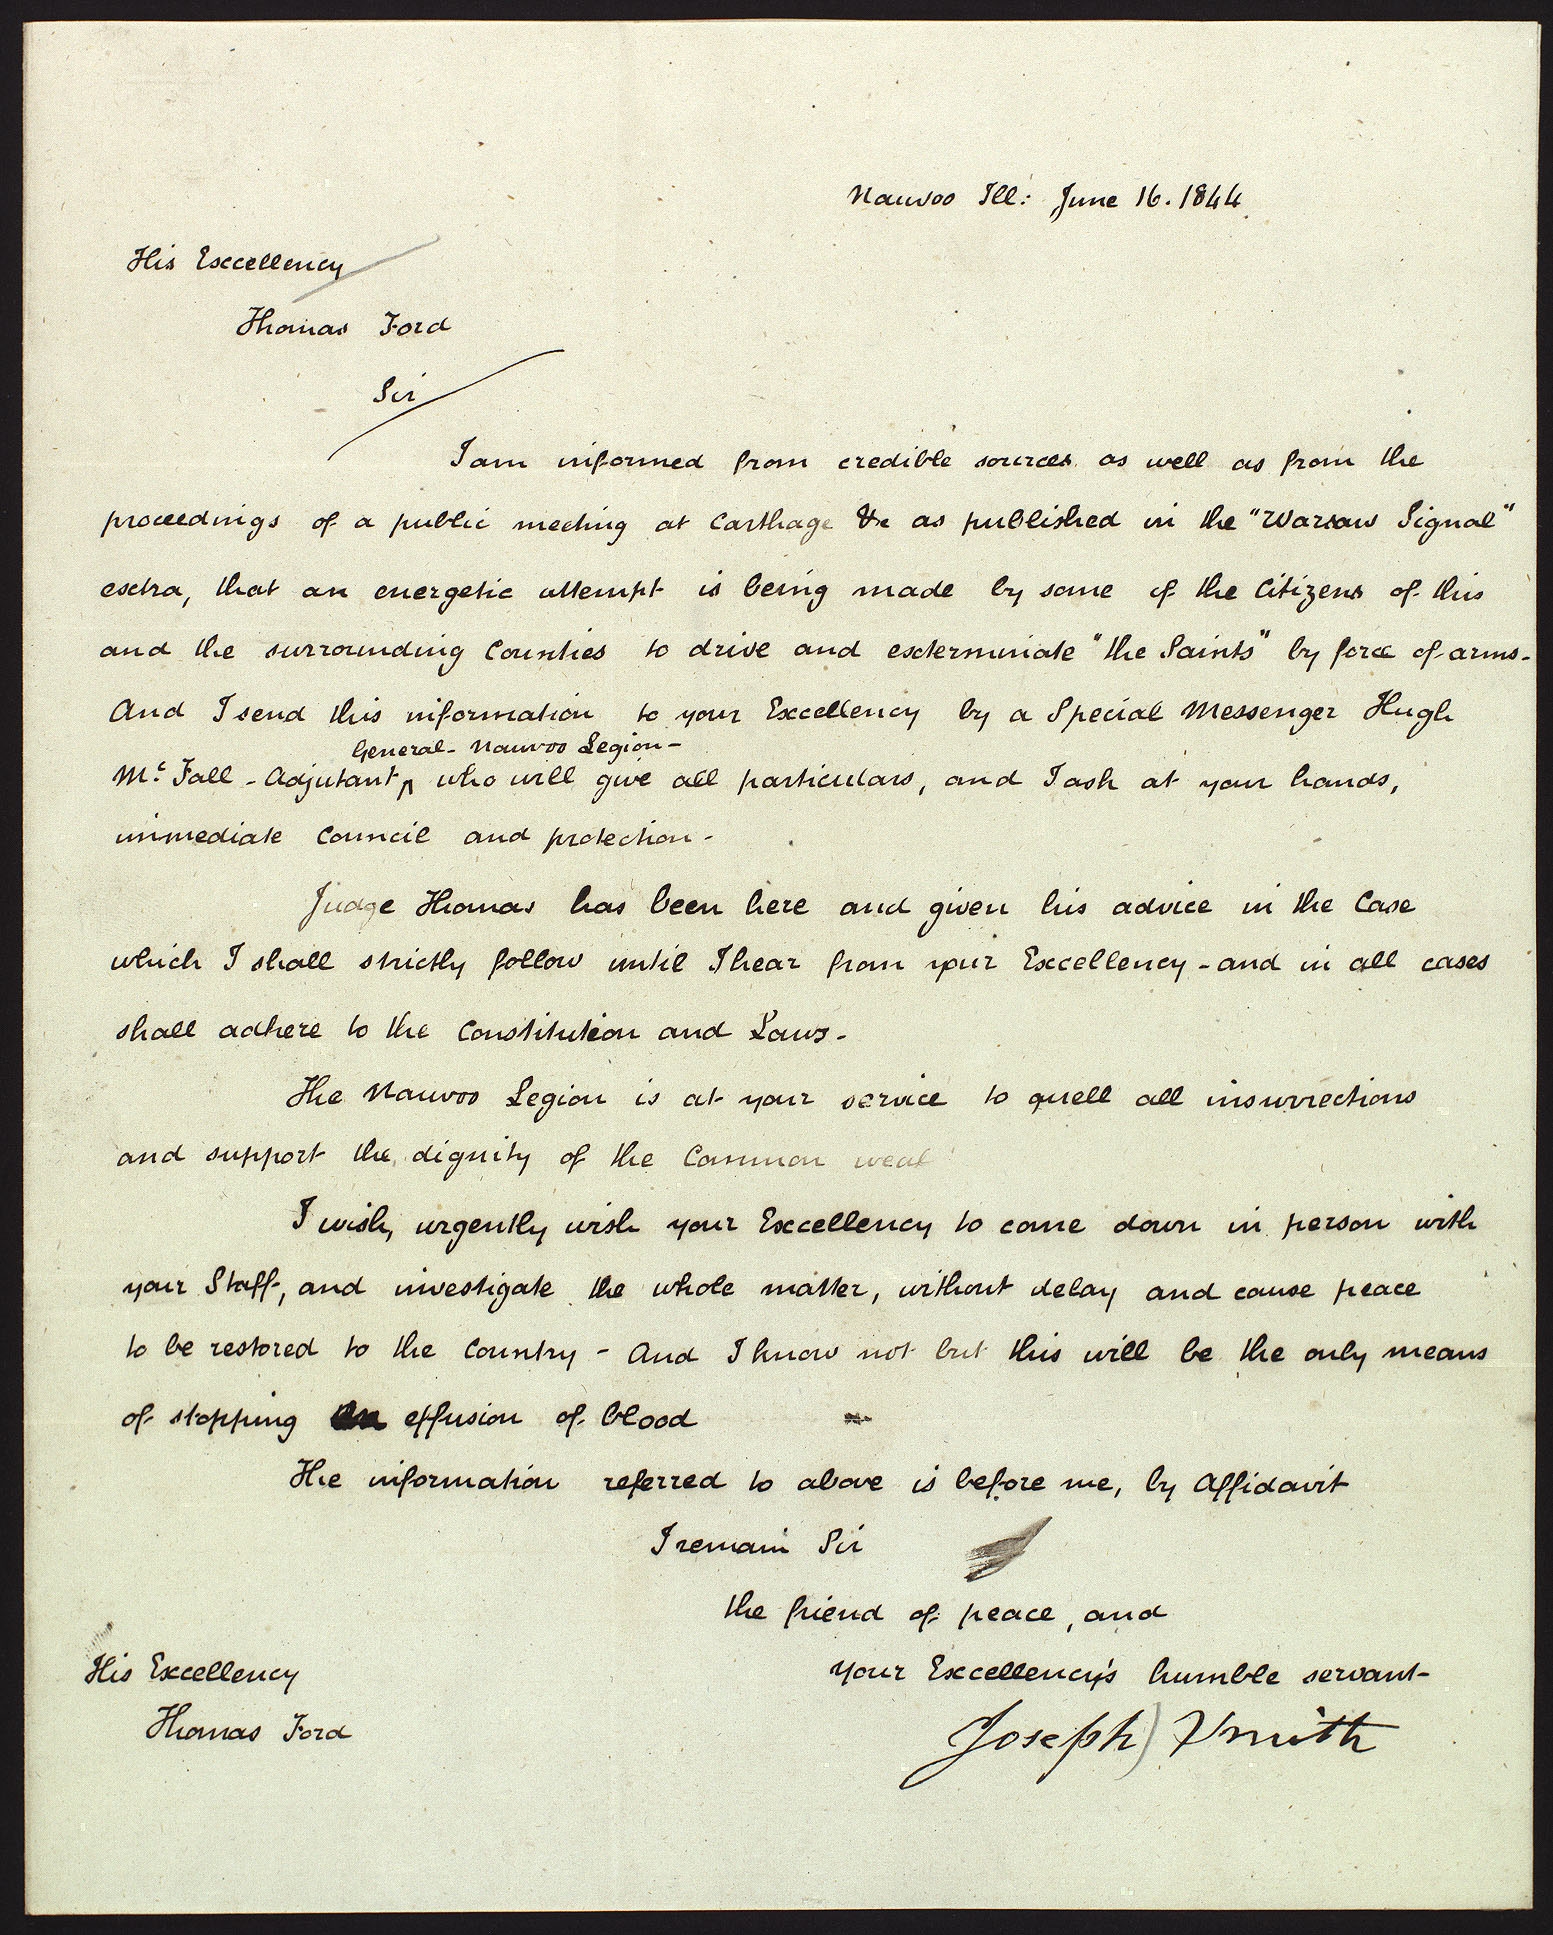 Nauvoo Ill: June 16. 1844
His Excellency
Thomas Ford
Sir
I am informed from credible sources as well as from the
proceedings of a public meeting at Carthage &c as published in the "Warsaw Signal"
extra, that an energetic attempt is being made by some of the Citizens of this
and the surrounding Counties to drive and exterminate "the Saints" by force of arms-
And I send this information to your Excellency by a Special Messenger Hugh
General - Nauvoo Legion -
Mc Fall - Adjutant ^ who will give all particulars, and I ask at your hands,
immediate Council and protection -
Judge Thomas has been here and given his advice in the Case
which I shall strictly follow until I hear from your Excellency - and in all cases
shall adhere to the Constitution and Laws -
The Nauvoo Legion is at your service to quell all insurrections
and support the dignity of the Common weal
I wish, urgently wish your Excellency to come down in person with
your Staff, and investigate the whole matter, without delay and cause peace
to be restored to the Country - And I know not but this will be the only means
of stopping effusion of blood
The information referred to above is before me, by Affidavit
I remain Sir
the friend of peace, and
your Excellency's humble servant-
His Excellency
Thomas Ford
Joseph Smith